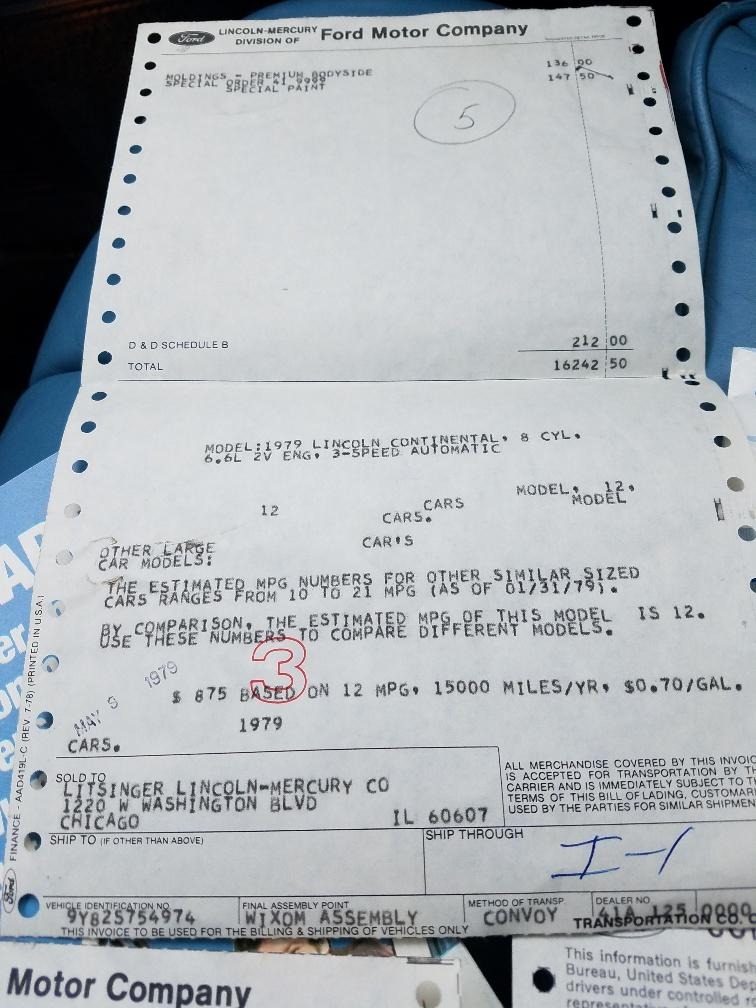 Ford
LINCOLN-MERCURY
DIVISION OF
Ford Motor Company
MOLDINGS - PREMIUM BODYSIDE 136 00
SPECIAL ORDER 41 9999 147 50
SPECIAL PAINT
5
D & D SCHEDULE B 212 00
TOTAL 16242 50
MODEL:1979 LINCOLN CONTINENTAL, 8 CYL.
6.6L 2V ENG, 3-SPEED AUTOMATIC
MODEL, 12.
12 CARS MODEL
CARS.
CAR'S
OTHER LARGE
CAR MODELS:
THE ESTIMATED MPG NUMBERS FOR OTHER SIMILAR SIZED
CARS RANGES FROM 10 TO 21 MPG (AS OF 01/31/79).
BY COMPARISON, THE ESTIMATED MPG OF THIS MODEL IS 12.
USE THESE NUMBERS TO COMPARE DIFFERENT MODELS.
3
MAY 9 1979
$ 875 BASED ON 12 MPG, 15000 MILES/YR, $0.70/GAL.
1979
CARS.
FINANCE - AAD419L-C (REV. 7-78) (PRINTED IN U.S.A.)
Ford
SOLD TO
LITSINGER LINCOLN-MERCURY CO
1220 W WASHINGTON BLVD
CHICAGO IL 60607
ALL MERCHANDISE COVERED BY THIS INVOIC
IS ACCEPTED FOR TRANSPORTATION BY TH
CARRIER AND IS IMMEDIATELY SUBJECT TO T
TERMS OF THIS BILL OF LADING, CUSTOMAR
USED BY THE PARTIES FOR SIMILAR SHIPMEN
SHIP TO (IF OTHER THAN ABOVE)
SHIP THROUGH
I-1
VEHICLE IDENTIFICATION NO.
9Y82S754974
FINAL ASSEMBLY POINT
WIXOM ASSEMBLY
METHOD OF TRANSP.
CONVOY
DEALER NO.
41A 125 0000
TRANSPORTATION CO.
THIS INVOICE TO BE USED FOR THE BILLING & SHIPPING OF VEHICLES ONLY
Motor Company
This information is furnish
Bureau, United States De
drivers under controlled
representative